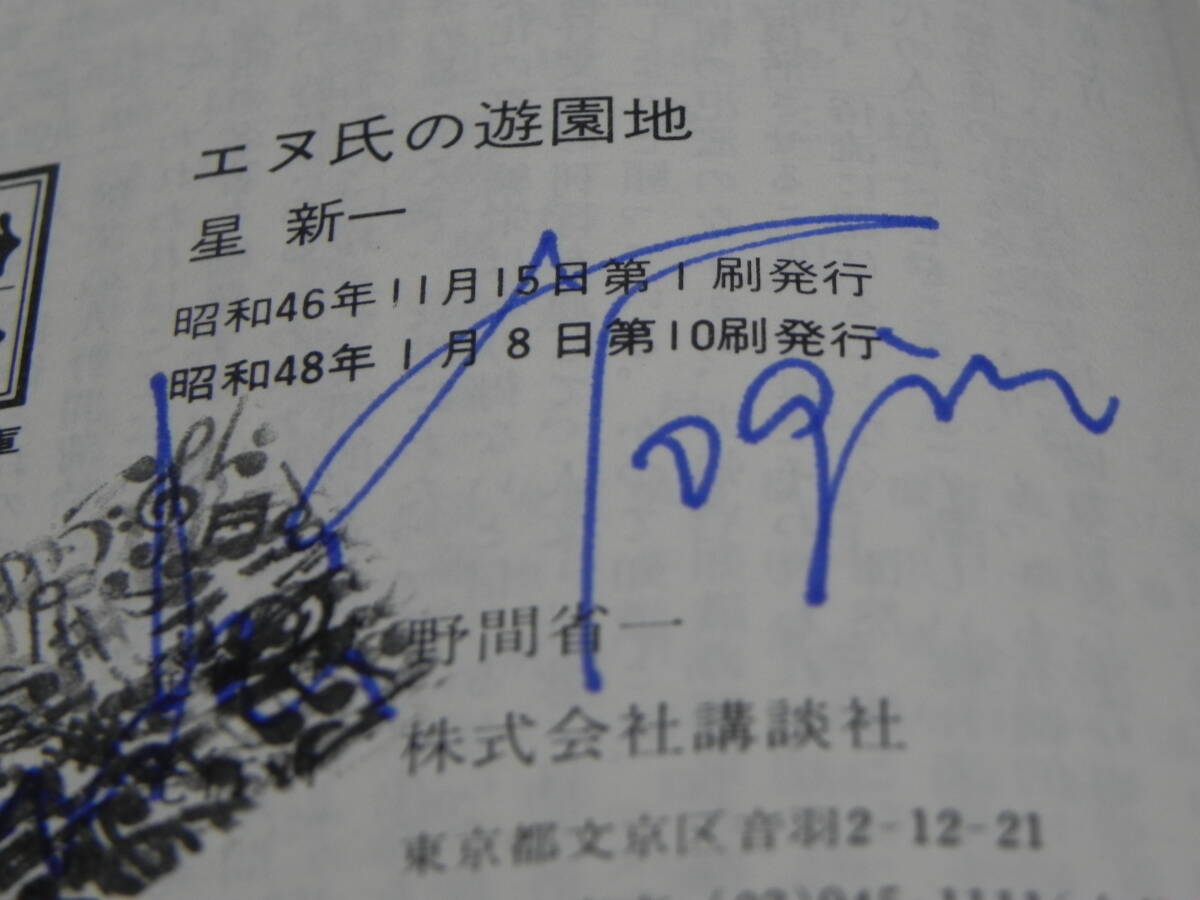 エヌ氏の遊園地
星 新一
昭和46年11月15日第1刷発行
昭和48年1月8日第10刷発行
野間省一
株式会社講談社
東京都文京区音羽2-12-21